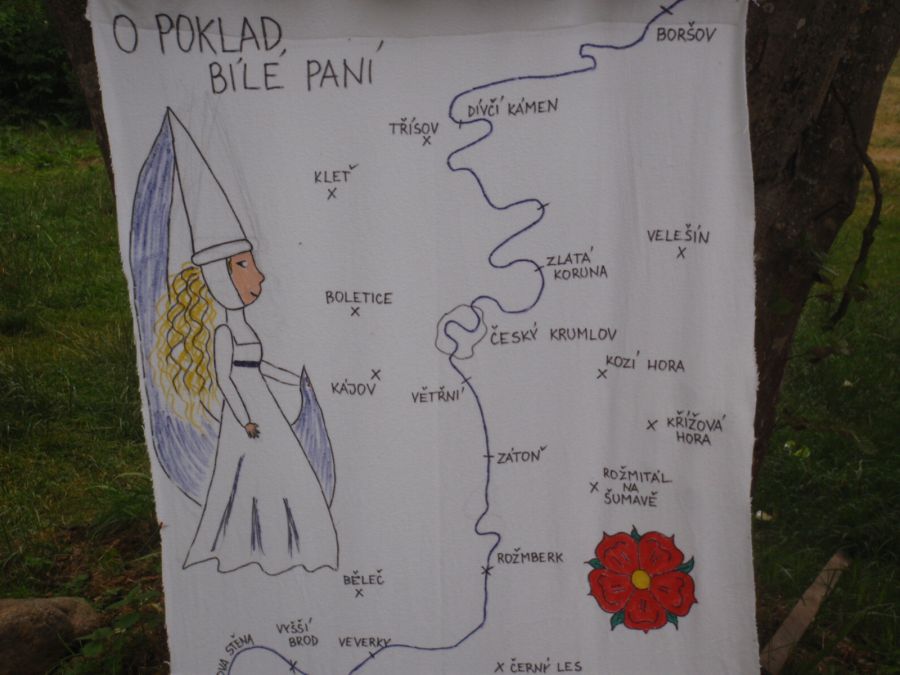 O POKLAD
BÍLÉ PANÍ
BORŠOV
DÍVČÍ KÁMEN
TŘÍSOV
KLEŤ
VELEŠÍN
ZLATÁ
KORUNA
BOLETICE
ČESKÝ KRUMLOV
KOZÍ HORA
KÁJOV
VĚTŘNÍ
KŘÍŽOVÁ
HORA
ZÁTOŇ
ROŽMITÁL
NA
ŠUMAVĚ
ROŽMBERK
BĚLEČ
VYŠŠÍ
BROD
VEVERKY
STĚNA
ČERNÝ LES